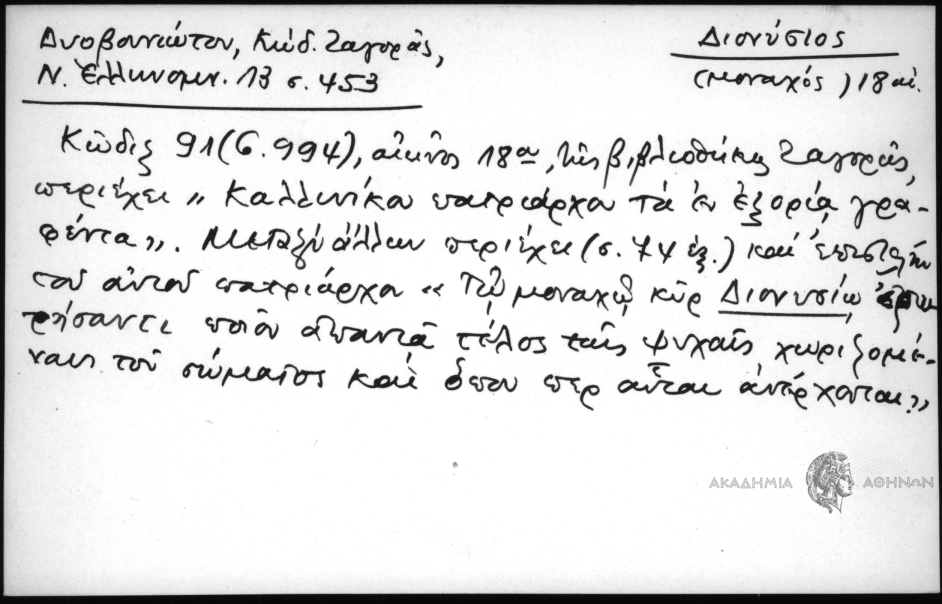 Δυοβουνιώτου, Κώδ. Ζαγορᾶς,
Ν. Ἑλληνομν. 13 σ. 453
Διονύσιος
(μοναχός) 18 αἰ.
Κῶδιξ 91 (σ. 994), αἰῶνος 18ου, τῆς βιβλιοθήκης Ζαγορᾶς,
περιέχει „ Καλλινίκου πατριάρχου τὰ ἐν ἐξορίᾳ γρα-
φέντα". Μεταξὺ ἄλλων περιέχει (σ. 74 ἑξ.) καὶ ἐπιστολὴν
τοῦ αὐτοῦ πατριάρχου « Τῷ μοναχῷ κὺρ Διονυσίῳ, ἐρω
τήσαντι ποῖον ἀπαντᾷ τέλος ταῖς ψυχαῖς χωριζομέ-
ναις τοῦ σώματος καὶ ὅπου περ αὗται ἀπέρχονται.»
ΑΚΑΔΗΜΙΑ ΑΘΗΝΩΝ